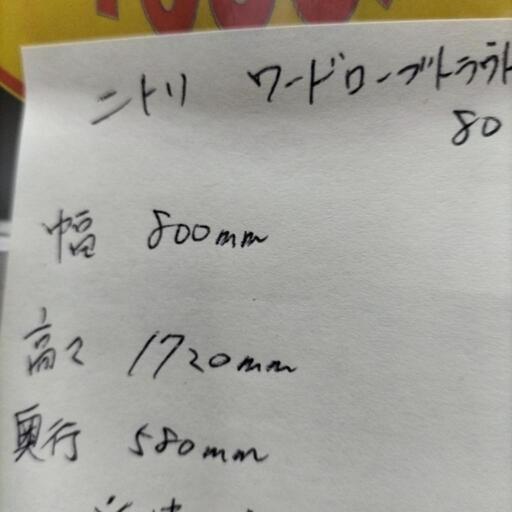 ニトリ ワードローブトラウト
80
幅 800mm
高さ 1720mm
奥行 580mm